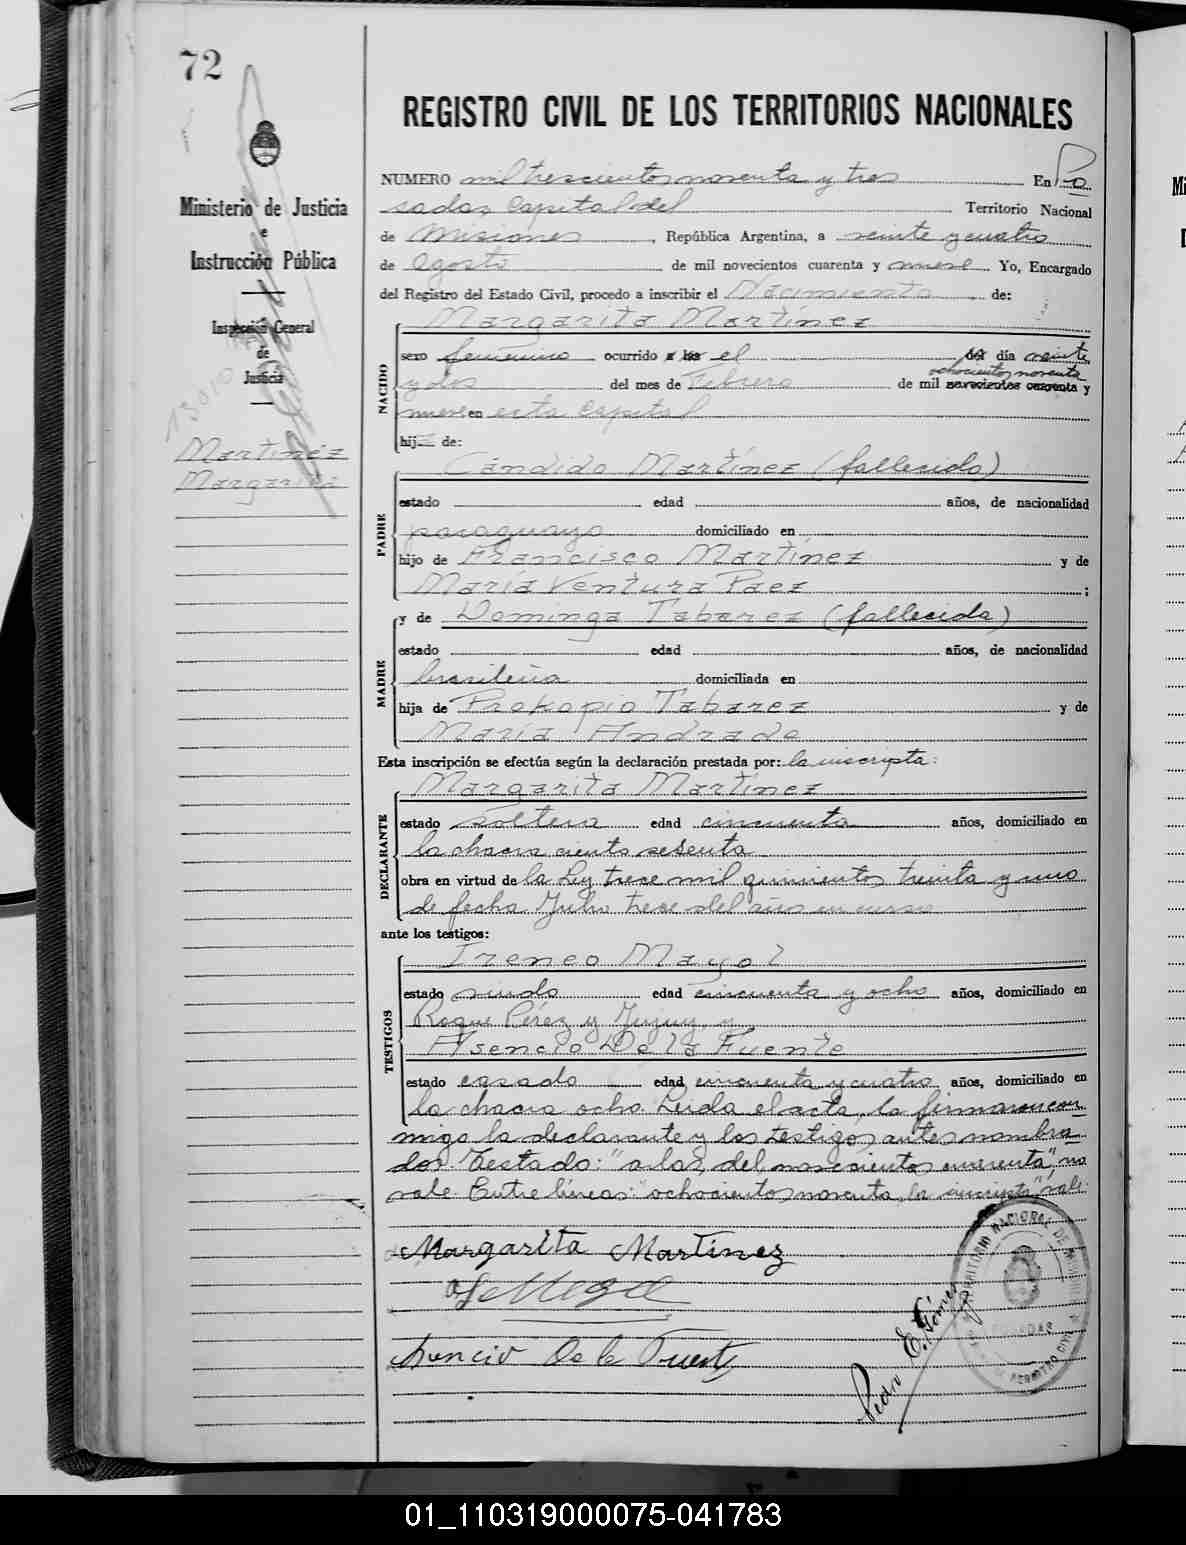 72
Ministerio de Justicia
e
Instrucción Pública
Inspección General
de
Justicia
Martínez
Margarita
REGISTRO CIVIL DE LOS TERRITORIOS NACIONALES
NUMERO mil trescientos noventa y tres En Po
sadas, Capital del Territorio Nacional
de Misiones, República Argentina, a veinte y cuatro
de Agosto de mil novecientos cuarenta y nueve Yo, Encargado
del Registro del Estado Civil, procedo a inscribir el Nacimiento de:
NACIDO
Margarita Martínez
sexo femenino ocurrido a las el del día veinte
ochocientos noventa
y dos del mes de Febrero de mil novecientos cuarenta y
nueve en esta Capital
hij de:
PADRE
Cándido Martínez (fallecido)
estado edad años, de nacionalidad
paraguayo domiciliado en
hijo de Francisco Martínez y de
María Ventura Paez ;
MADRE
y de Dominga Tabarez (fallecida)
estado edad años, de nacionalidad
brasileña domiciliada en
hija de Prokopio Tabarez y de
María Andrade
Esta inscripción se efectúa según la declaración prestada por: la inscripta:
DECLARANTE
Margarita Martínez
estado soltera edad cincuenta años, domiciliado en
la chacra ciento sesenta
obra en virtud de la Ley trece mil quinientos treinta y uno
de fecha Julio trece del año en curso
ante los testigos:
TESTIGOS
Ireneo Mayol
estado viudo edad cincuenta y ocho años, domiciliado en
Roque Pérez y Jujuy, y
Asencio De la Fuente
estado casado edad cincuenta y cuatro años, domiciliado en
la chacra ocho Leida el acta, la firmaron con
migo la declarante y los testigos antes nombra
dos. Testado: "a las, del, novecientos cuarenta", no
vale. Entre líneas: "ochocientos noventa, la inscripta" vale.
Margarita Martínez
Asencio De la Fuente
Juan E. Gómez
TERRITORIO NACIONAL DE MISIONES
POSADAS
REGISTRO CIVIL
01_110319000075-041783